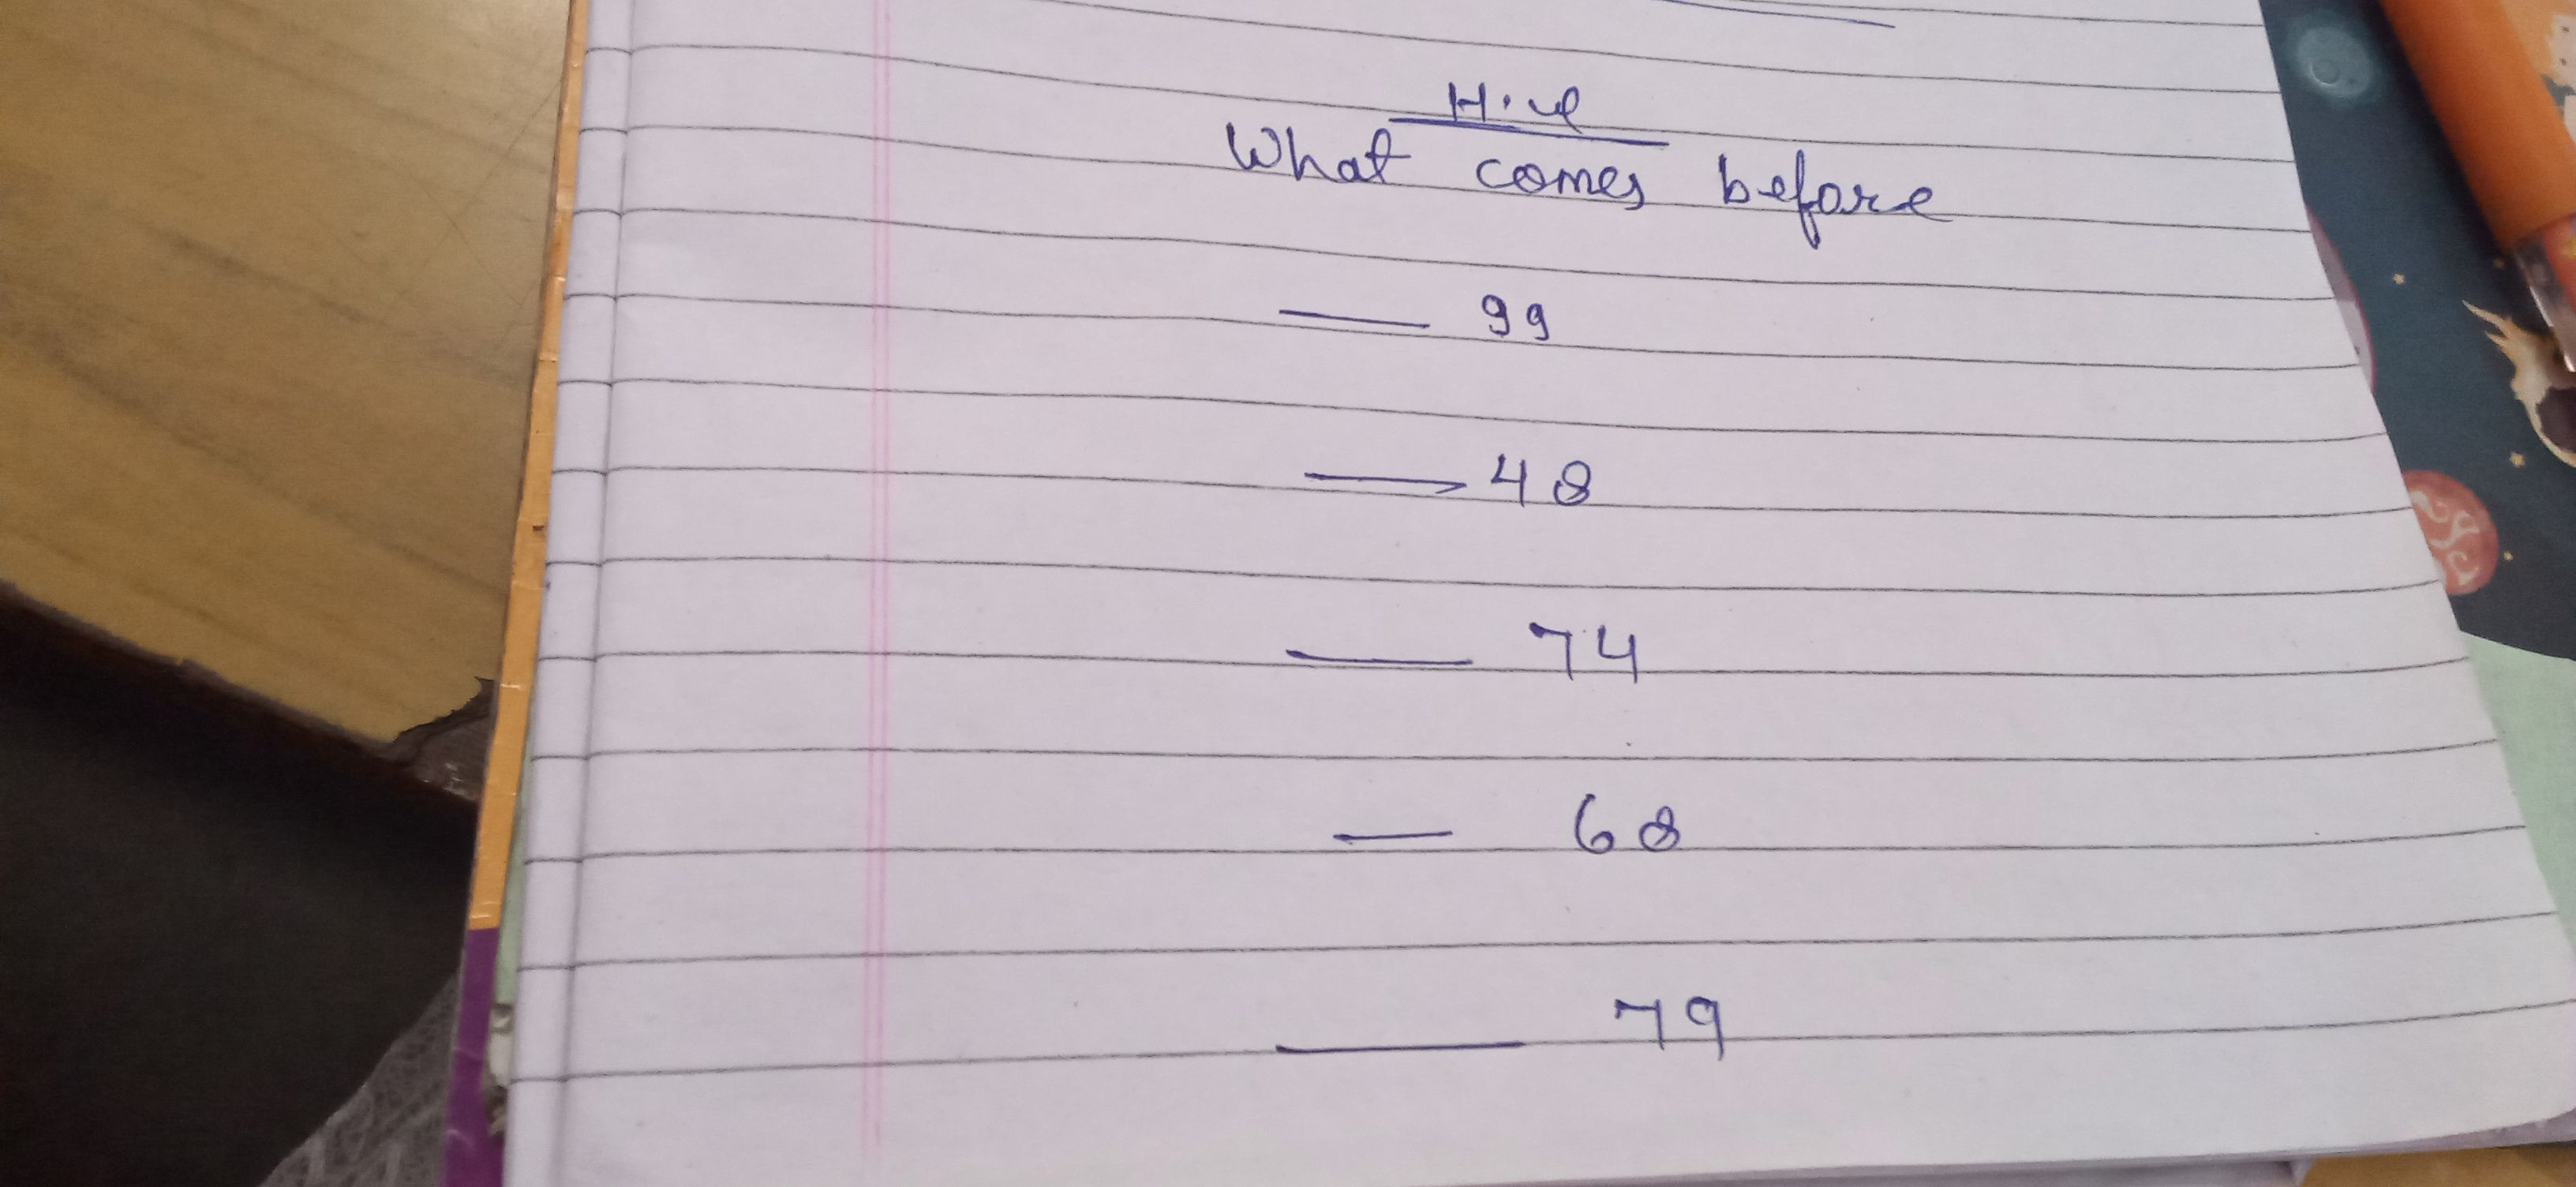 H.W
What comes before
___ 99
___ 48
___ 74
___ 68
___ 79